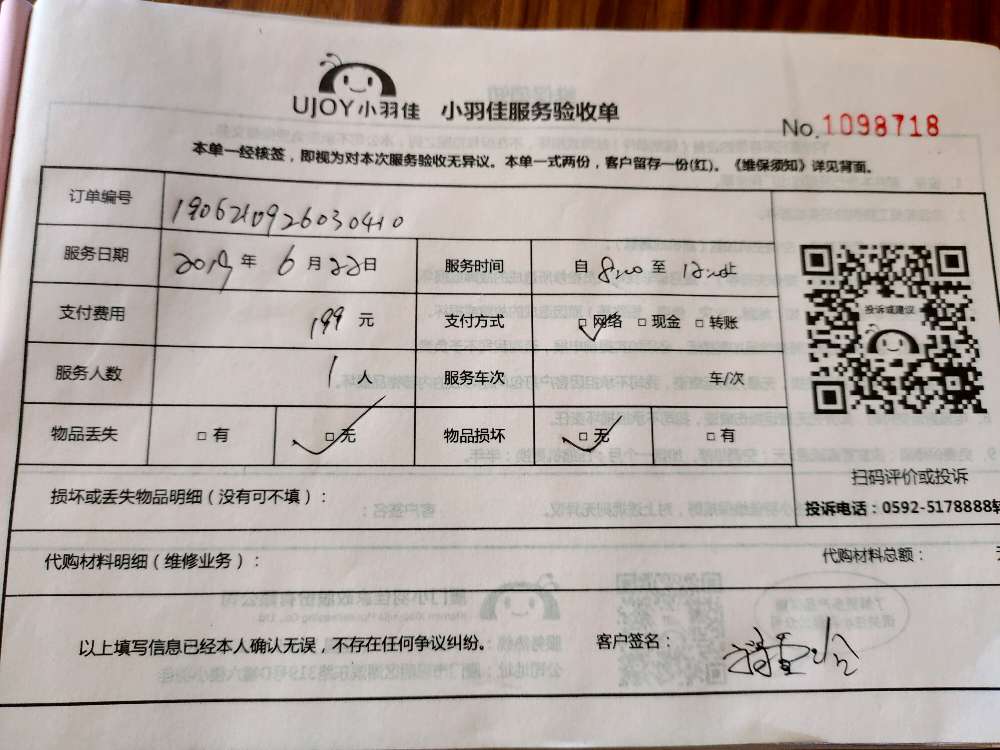 UJOY小羽佳 小羽佳服务验收单
No.1098718
本单一经核签，即视为对本次服务验收无异议。本单一式两份，客户留存一份(红)。《维保须知》详见背面。
订单编号 1906210926030410
服务日期 2019年6月22日 服务时间 自8:00至12:00止
支付费用 199元 支付方式 □网络 □现金 □转账
投诉或建议
服务人数 1人 服务车次 车/次
物品丢失 □有 □无 物品损坏 □无 □有
扫码评价或投诉
损坏或丢失物品明细（没有可不填）：
投诉电话：0592-5178888转
代购材料明细（维修业务）： 代购材料总额：
以上填写信息已经本人确认无误，不存在任何争议纠纷。 客户签名：